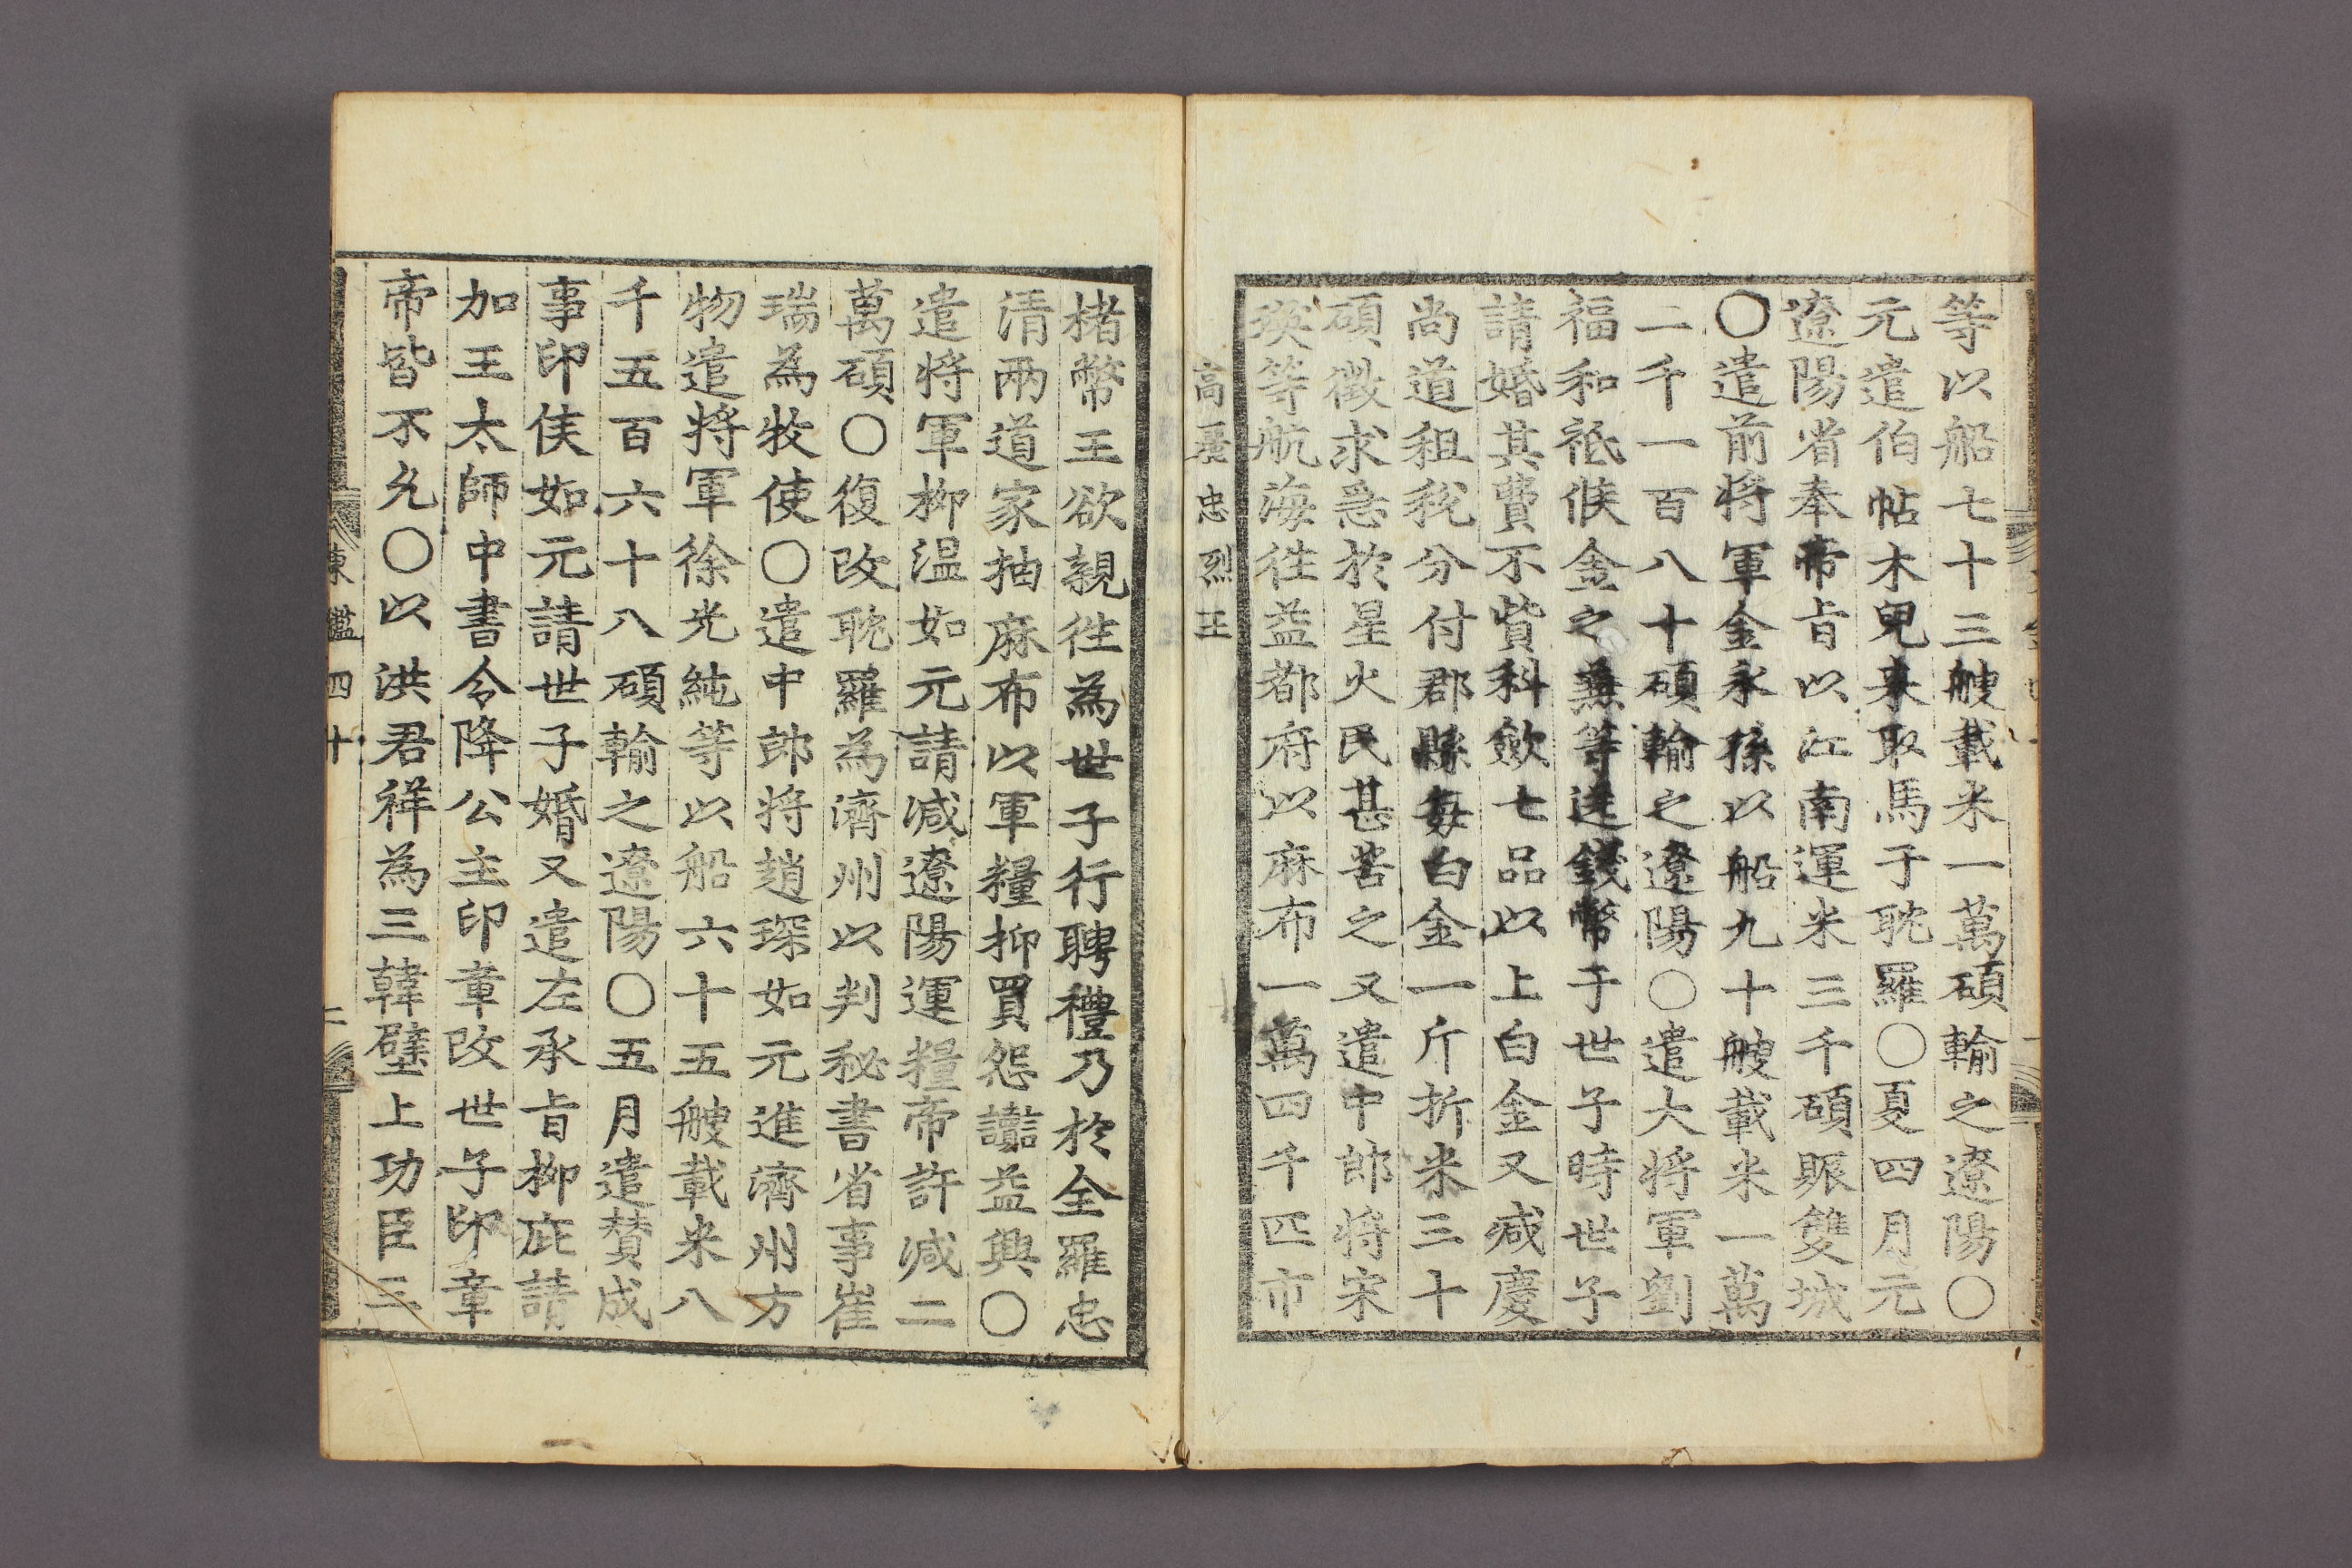 等以船七十三艘載米一萬碩輸之遼陽○
元遣伯帖木兒來取馬于耽羅○夏四月元
遼陽省奉帝旨以江南運米三千碩賑雙城
○遣前將軍金永孫以船九十艘載米一萬
二千一百八十碩輸之遼陽○遣大將軍劉
福和祗候金之兼等送錢幣于世子時世子
請婚其費不貲科斂七品以上白金又減慶
尚道租稅分付郡縣每白金一斤折米三十
碩徵求急於星火民甚苦之又遣中郎將宋
瑛等航海徃益都府以麻布一萬四千匹市
高麗忠烈王
楮幣王欲親徃為世子行聘禮乃於全羅忠
清兩道家抽麻布以軍糧抑買怨讟益興○
遣將軍柳温如元請减遼陽運糧帝許减二
萬碩○復改耽羅為濟州以判秘書省事崔
瑞為牧使○遣中郎將趙琛如元進濟州方
物遣將軍徐光純等以船六十五艘載米八
千五百六十八碩輸之遼陽○五月遣賛成
事印侯如元請世子婚又遣左承旨柳庇請
加王太師中書令降公主印章改世子印章
帝皆不允○以洪君祥為三韓壁上功臣三
東鑑四十 二